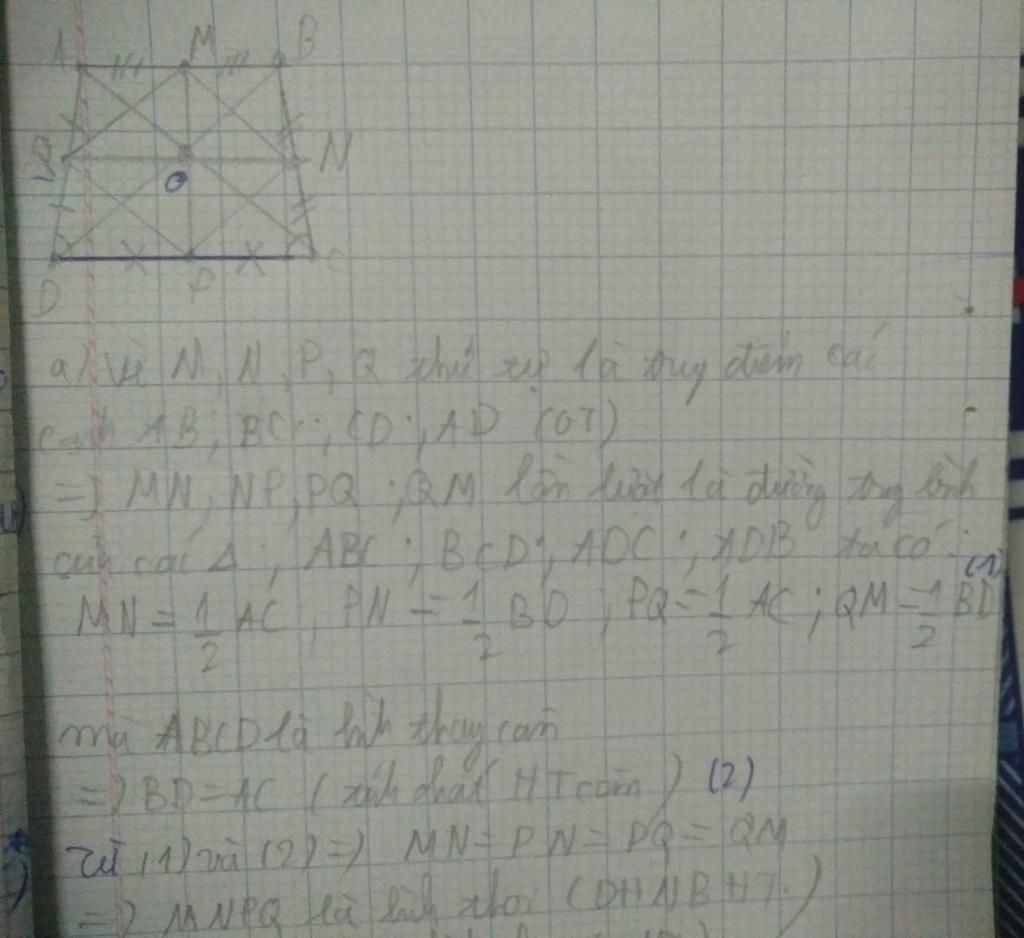 A M B
Q N
O
D P C
a) Vì M, N, P, Q thứ tự là trug điểm các
cạnh AB; BC; CD; AD (GT)
=) MN, NP, PQ; QM lần lượt là đường trug bình
của các Δ; ABC; BCD; ADC; ADB ta có: (1)
MN = 1/2 AC, PN = 1/2 BD; PQ = 1/2 AC; QM = 1/2 BD
mà ABCD là hình thag cân
=) BD = AC (tính chất HT cân) (2)
Từ (1) và (2) =) MN = PN = PQ = QM
=) MNPQ là hình thoi (DHNBHT.)